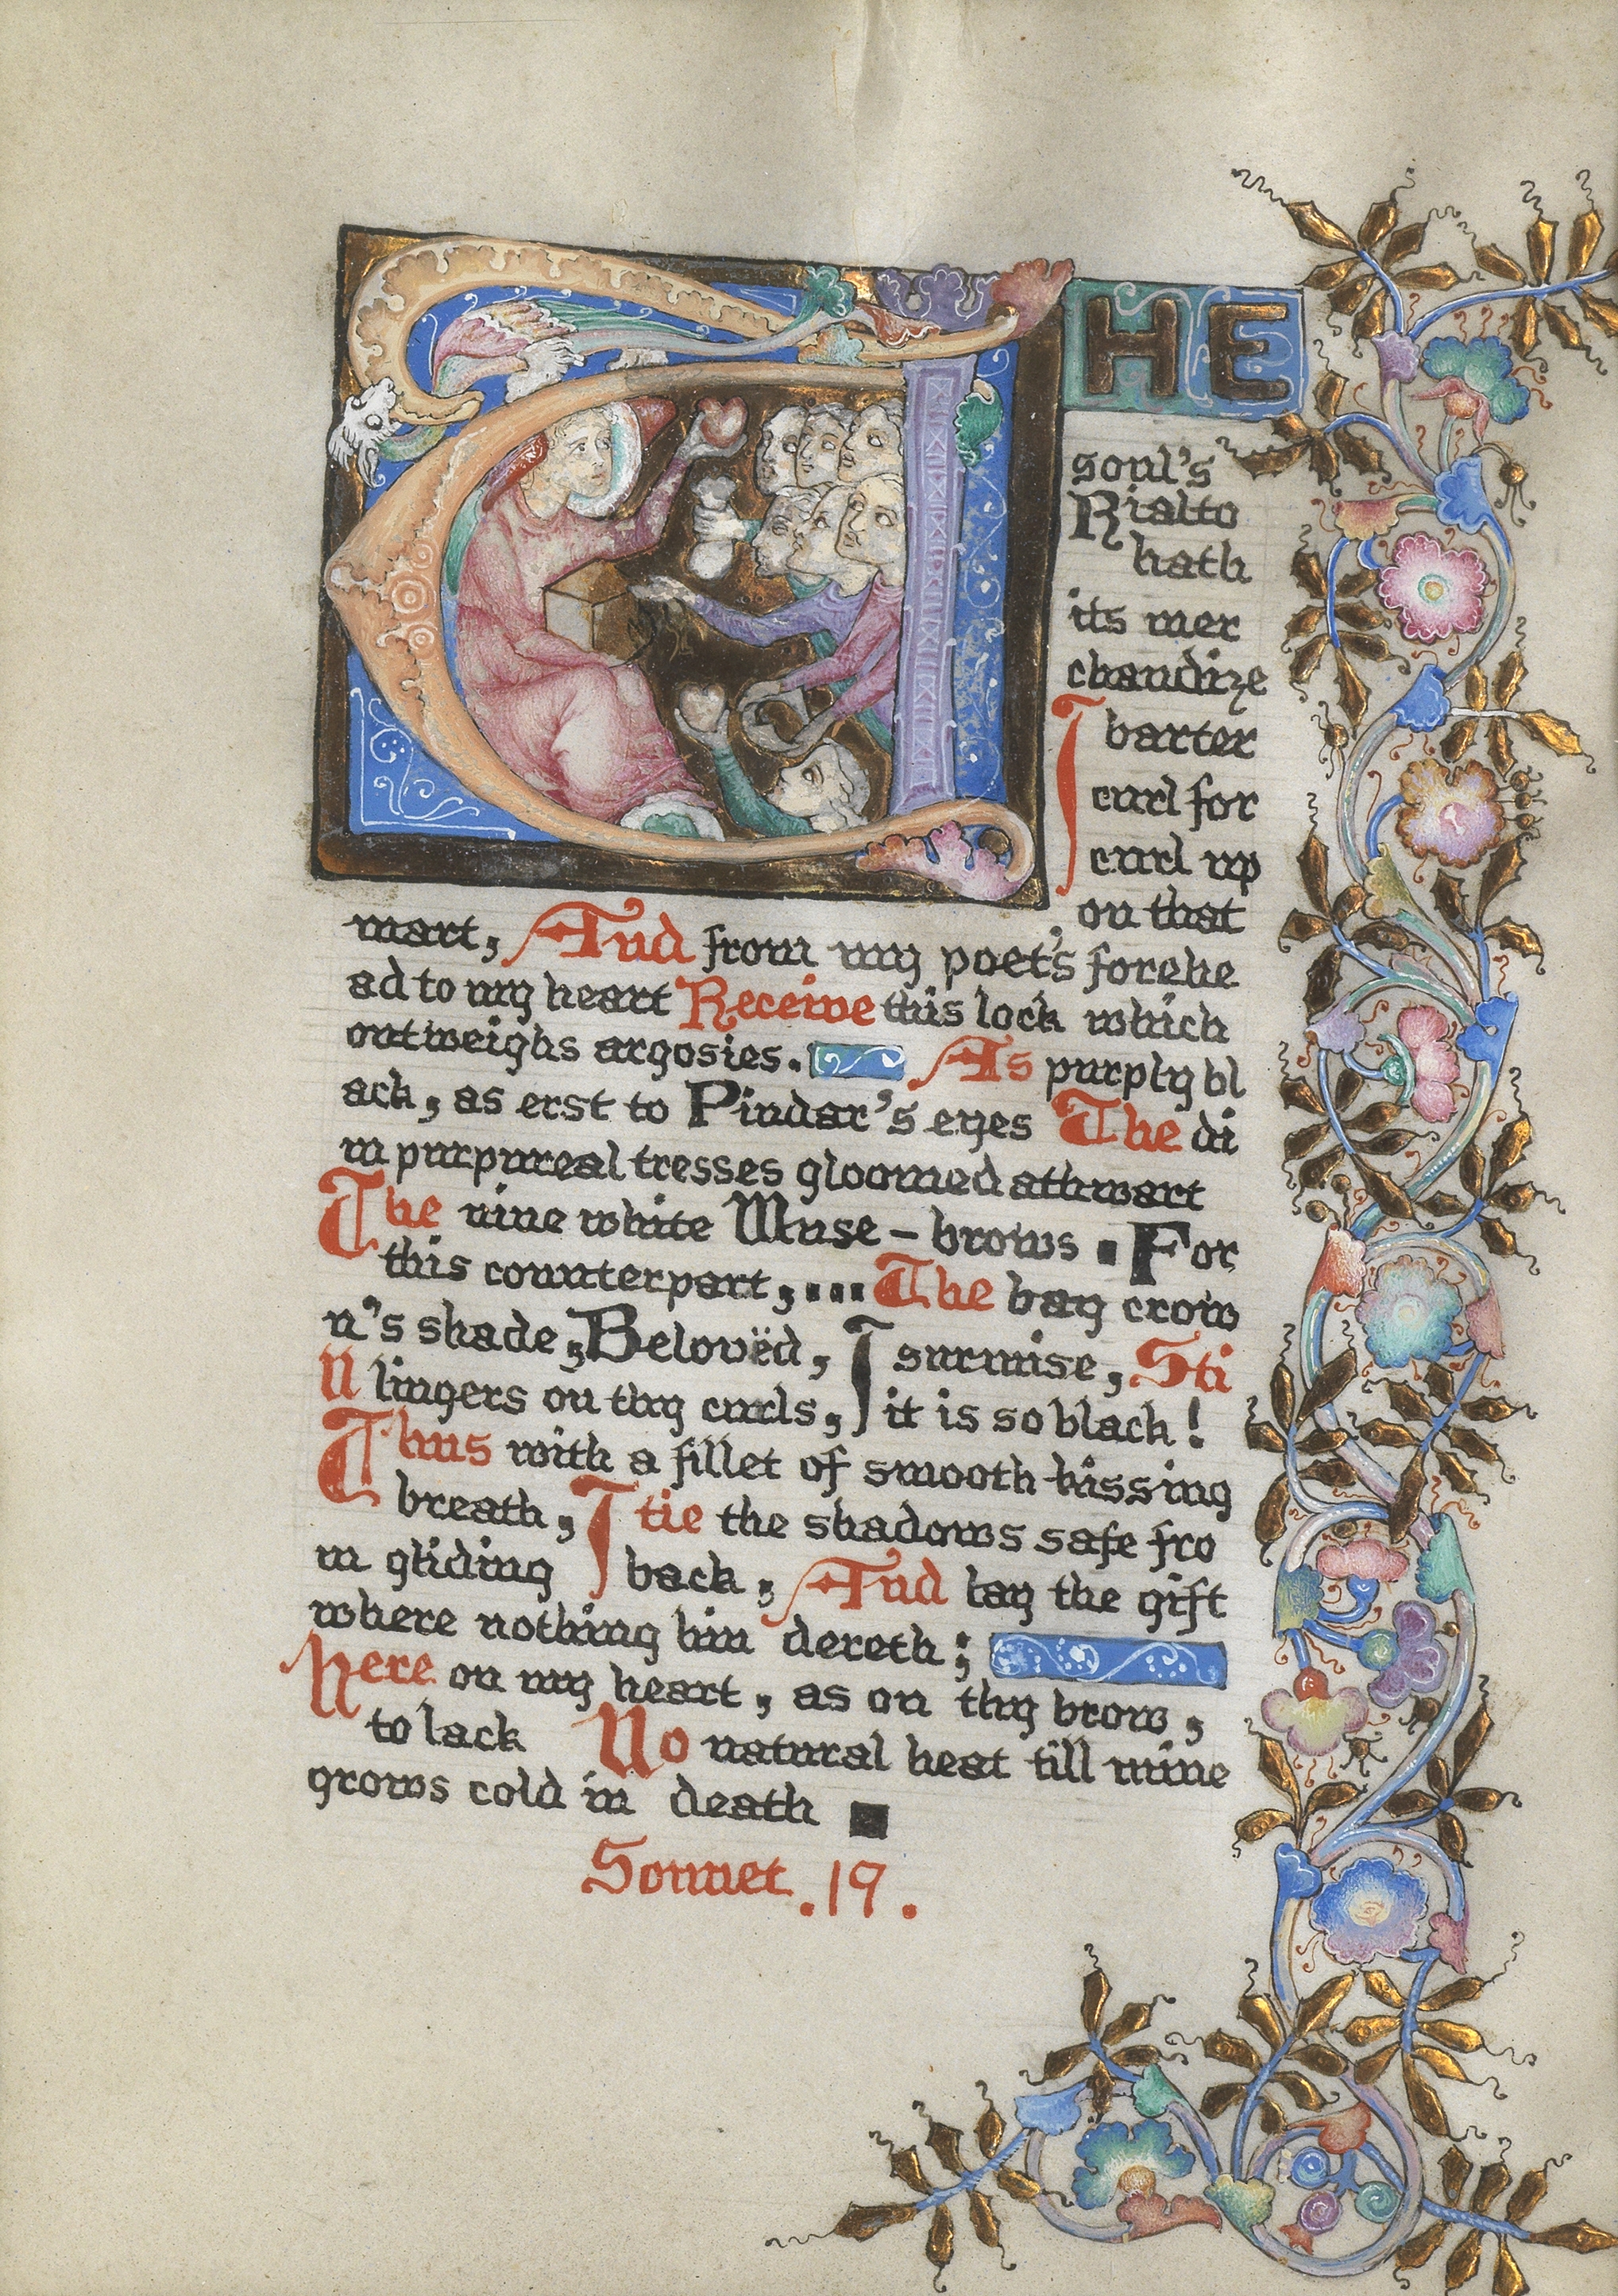 THE
soul's
Rialto
hath
its mer
chandize
I barter
curl for
curl up
on that
mart, And from my poet's forehe
ad to my heart Receive this lock which
outweighs argosies. As purply bl
ack, as erst to Pindar's eyes The di
m purpureal tresses gloomed athwart
The nine white Muse-brows. For
this counterpart,... The bay crow
n's shade, Belovëd, I surmise, Sti
ll lingers on thy curls, it is so black!
Thus with a fillet of smooth-kissing
breath, I tie the shadows safe fro
m gliding back, And lay the gift
where nothing hin dereth;
Here on my heart, as on thy brow,
to lack No natural heat till mine
grows cold in death
Sonnet .19.